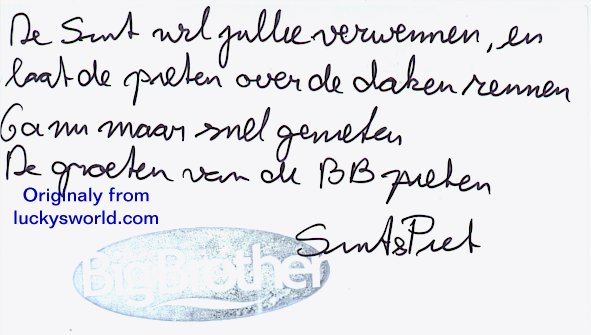 De Sint wil jullie verwennen, en
laat de pieten over de daken rennen
Ga nu maar snel genieten
De groeten van de BB pieten
Originaly from
luckysworld.com
Sint&Piet
BigBrother